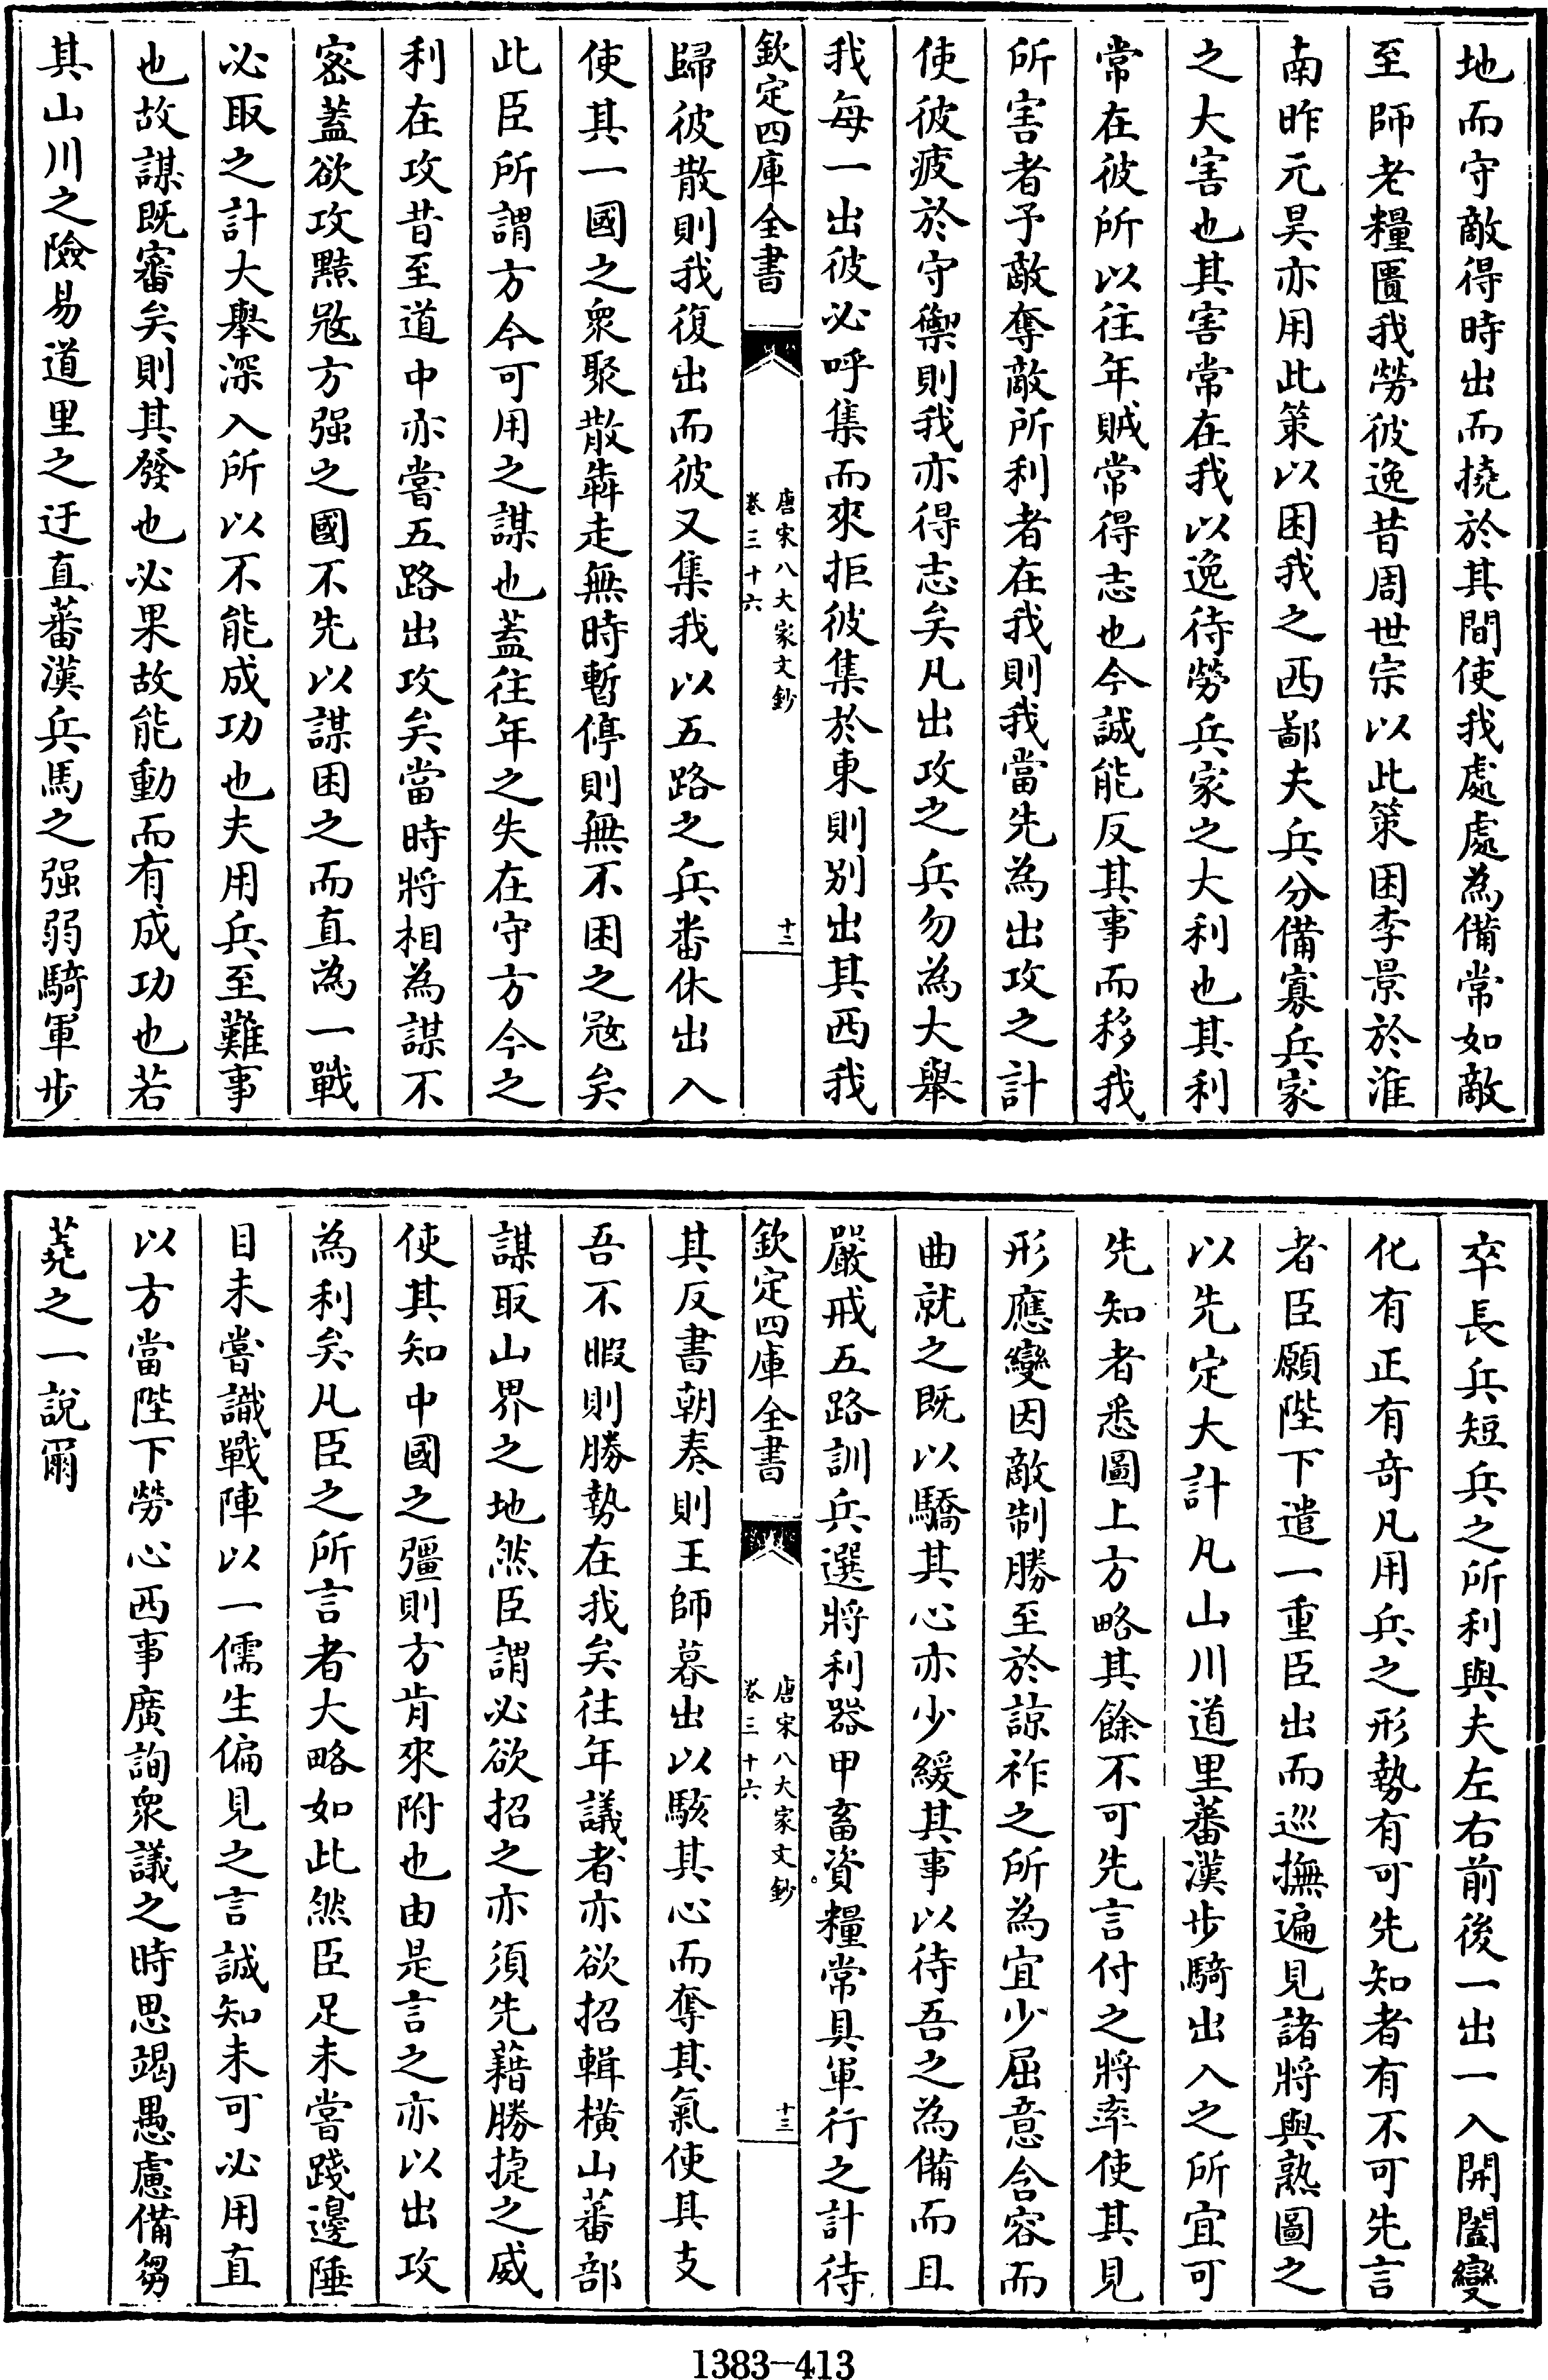 地而守敵得時出而撓於其間使我處處為備常如敵
至師老糧匱我勞彼逸昔周世宗以此策困李景於淮
南昨元昊亦用此策以困我之西鄙夫兵分備寡兵家
之大害也其害常在我以逸待勞兵家之大利也其利
常在彼所以往年賊常得志也今誠能反其事而移我
所害者予敵奪敵所利者在我則我當先為出攻之計
使彼疲於守禦則我亦得志矣凡出攻之兵勿為大舉
我每一出彼必呼集而來拒彼集於東則别出其西我
欽定四庫全書
唐宋八大家文鈔
卷三十六
十二
歸彼散則我復出而彼又集我以五路之兵番休出入
使其一國之衆聚散犇走無時暫停則無不困之冦矣
此臣所謂方今可用之謀也蓋往年之失在守方今之
利在攻昔至道中亦嘗五路出攻矣當時將相為謀不
密蓋欲攻黠冦方强之國不先以謀困之而直為一戰
必取之計大舉深入所以不能成功也夫用兵至難事
也故謀既審矣則其發也必果故能動而有成功也若
其山川之險易道里之迂直蕃漢兵馬之强弱騎軍步
卒長兵短兵之所利與夫左右前後一出一入開闔變
化有正有奇凡用兵之形勢有可先知者有不可先言
者臣願陛下遣一重臣出而巡撫遍見諸將與熟圖之
以先定大計凡山川道里蕃漢步騎出入之所宜可
先知者悉圖上方略其餘不可先言付之將率使其見
形應變因敵制勝至於諒祚之所為宜少屈意含容而
曲就之既以驕其心亦少緩其事以待吾之為備而且
嚴戒五路訓兵選將利器甲畜資糧常具軍行之計待
欽定四庫全書
唐宋八大家文鈔
卷三十六
十三
其反書朝奏則王師暮出以駭其心而奪其氣使其支
吾不暇則勝勢在我矣往年議者亦欲招輯橫山蕃部
謀取山界之地然臣謂必欲招之亦須先藉勝捷之威
使其知中國之彊則方肯來附也由是言之亦以出攻
為利矣凡臣之所言者大略如此然臣足未嘗踐邊陲
目未嘗識戰陣以一儒生偏見之言誠知未可必用直
以方當陛下勞心西事廣詢衆議之時思竭愚慮備芻
蕘之一說爾
1383-413